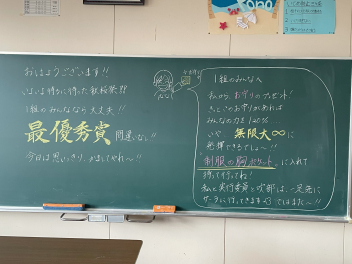 おはようございます!!
いよいよ待ちに待った合唱祭!!
1組のみんななら大丈夫!!
最優秀賞 間違いなし!!
今日は思いっきり、かましてやれ〜!!
1組のみんなへ
私から、お守りのプレゼント!
きっとこのお守りがあれば
みんなの力を120%
いや 無限大∞に
発揮できるでしょ〜!!
制服の胸ポケットに入れて
持って行ってね!
私と実行委員と吹部は、一足先に
ではまた〜!!